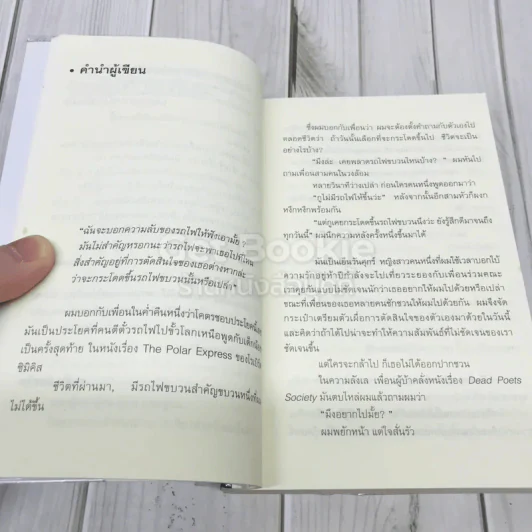 • คำนำผู้เขียน
"ฉันจะบอกความลับของรถไฟให้ฟังเอามั้ย
มันไม่สำคัญหรอกนะว่ารถไฟจะพาเธอไปไหน
สิ่งสำคัญอยู่ที่การตัดสินใจของเธอต่างหากล่ะ
ว่าจะกระโดดขึ้นรถไฟขบวนนั้นหรือเปล่า"
ผมบอกกับเพื่อนในค่ำคืนหนึ่งว่าโคตรชอบประโยคนี้เลย
มันเป็นประโยคที่คนตีตั๋วรถไฟไปขั้วโลกเหนือพูดกับเด็กน้อย
เป็นครั้งสุดท้าย ในหนังเรื่อง The Polar Express ของโรเบิร์ต
ซิมิคิส
ชีวิตที่ผ่านมา, มีรถไฟขบวนสำคัญขบวนหนึ่งที่ผม
ไม่ได้ขึ้น
ซึ่งผมบอกกับเพื่อนว่า ผมจะต้องตั้งคำถามกับตัวเองไป
ตลอดชีวิตว่า ถ้าวันนั้นเลือกที่จะกระโดดขึ้นไป ชีวิตจะเป็น
อย่างไรบ้าง?
"มึงล่ะ เคยพลาดรถไฟขบวนไหนบ้าง?" ผมหันไป
ถามเพื่อนสามคนในวงล้อม
หลายวินาทีว่างเปล่า ก่อนใครคนหนึ่งพูดออกมาว่า
"กูไม่มีรถไฟให้ขึ้นว่ะ" หลังจากนั้นอีกสามหัวก็ผงก
หงึกหงักพร้อมกัน
"แต่กูเคยกระโดดขึ้นรถไฟขบวนนึงว่ะ ยังรู้สึกดีมาจนถึง
ทุกวันนี้" ผมนึกความหลังครั้งหนึ่งขึ้นมาได้
มันเป็นเย็นวันศุกร์ หญิงสาวคนหนึ่งที่ผมใช้เวลาบอกไป
ความรักอยู่ห้าปีกำลังจะไปเที่ยวระยองกับเพื่อนร่วมคณะ
เราคุยกันแบบไม่ชัดเจนนักว่าเธออยากให้ผมไปด้วยหรือเปล่า
ขณะที่เพื่อนของเธอหลายคนชักชวนให้ผมไปด้วยกัน ผมจึงจัด
กระเป๋าเตรียมตัวเผื่อการตัดสินใจของตัวเองมาด้วยในวันนี้
และคิดว่าถ้าได้ไปน่าจะทำให้ความสัมพันธ์ที่ไม่ชัดเจนของเรา
ชัดเจนขึ้น
แต่ใครจะกล้าไป ก็เธอไม่ได้ออกปากชวน
ในความลังเล เพื่อนผู้บ้าคลั่งหนังเรื่อง Dead Poets
Society มันตบไหล่ผมแล้วถามผมว่า
"มึงอยากไปมั้ย?"
ผมพยักหน้า แต่ใจสั่นรัว